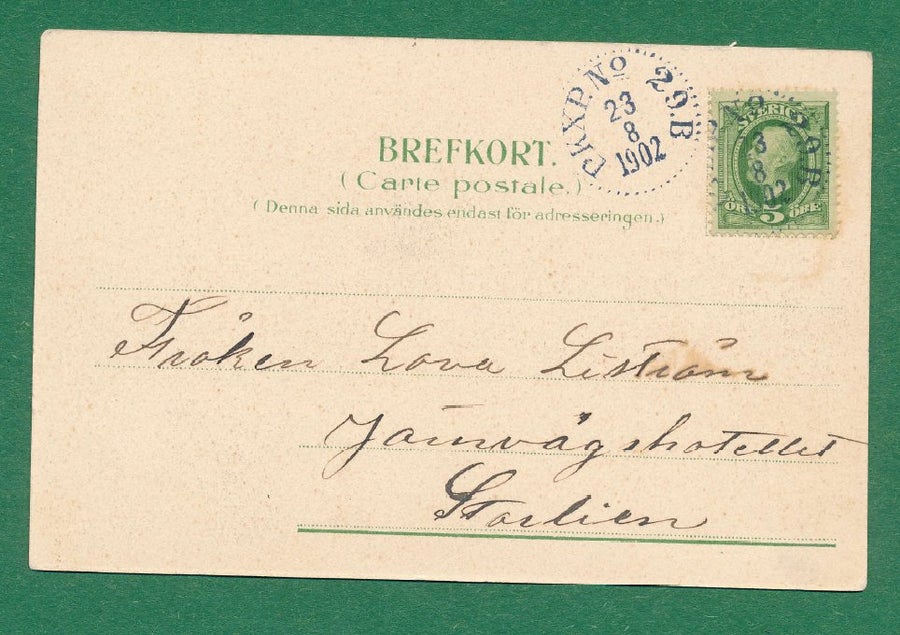 PKXP. No 29.B
23
8
1902
SVERIGE
5
ÖRE ÖRE
BREFKORT.
(Carte postale.)
(Denna sida användes endast för adresseringen.)
Fröken Lova Liström
Järnvägshotellet
Storlien